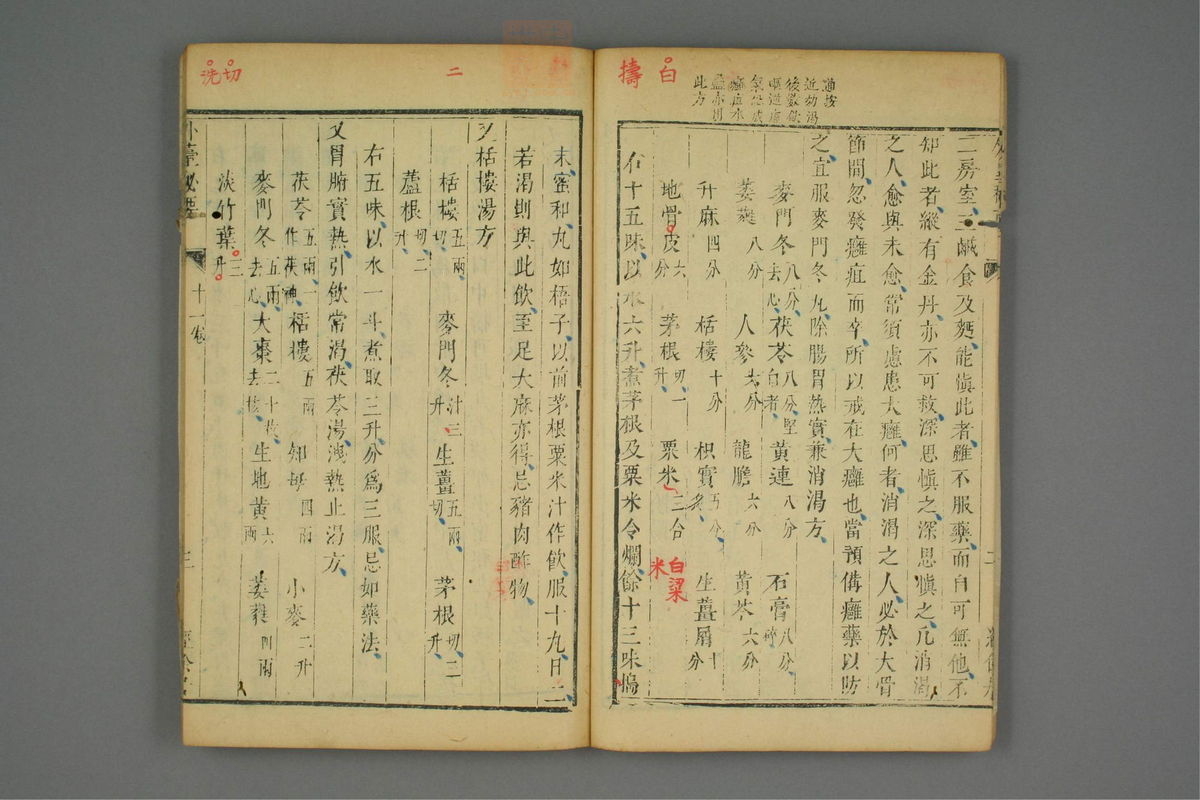 二房室三鹹食及麫能愼此者雖不服藥而自可無他不
知此者縱有金丹亦不可救深思愼之深思愼之凡消渴
之人愈與未愈常須慮患大癰何者消渴之人必於大骨
節間忽發癰疽而卒所以戒在大癰也當預備癰藥以防
之宜服麥門冬丸除腸胃熱實兼消渴方
麥門冬八分去心 茯苓八分堅白者 黃連八分 石膏八分碎
萎蕤八分 人參六分 龍膽六分 黃芩六分
升麻四分 栝樓十分 枳實五分炙 生薑屑十分
地骨皮六分 茅根切一升 粟米三合
白粱米
右十五味以水六升煮茅根及粟米令爛餘十三味搗
白
擣
末蜜和丸如梧子以前茅根粟米汁作飲服十九日二
若渴則與此飲至足大麻亦得忌豬肉酢物
又栝樓湯方
栝樓五兩切 麥門冬汁三升 生薑五兩切 茅根切二升
蘆根切二升
右五味以水一斗煮取三升分爲三服忌如藥法
又胃腑實熱引飲常渴茯苓湯洩熱止渴方
茯苓五兩一作茯神 栝樓五兩 知母四兩 小麥二升
麥門冬五兩去心 大棗二十枚去核 生地黃六兩 萎蕤四兩
淡竹葉三升
二
切
洗
外臺秘要
十一卷
二